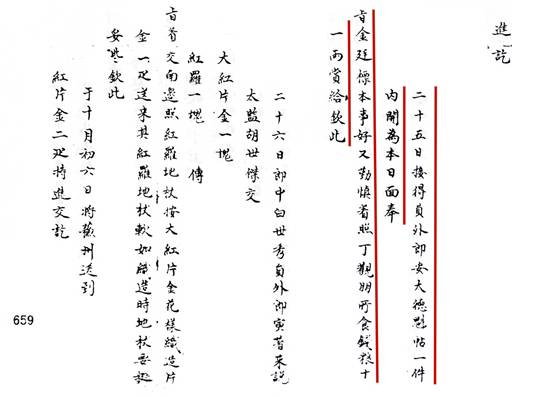 進訖
二十五日接得員外郎安大德帖一件
內開為本日面奉
旨金廷標本事好又勤慎着照丁觀鵬所食錢糧十
一兩賞給欽此
二十六日郎中白世秀員外郎寅著來說
太監胡世傑交
大紅片金一塊
紅羅一塊 傳
旨着交南邊照紅羅地杖按大紅片金花樣織造片
金一疋送來其紅羅地杖軟如織造時地杖要挺
妥些欽此
于十月初六日將蘇州送到
紅片金二疋持進交訖
659